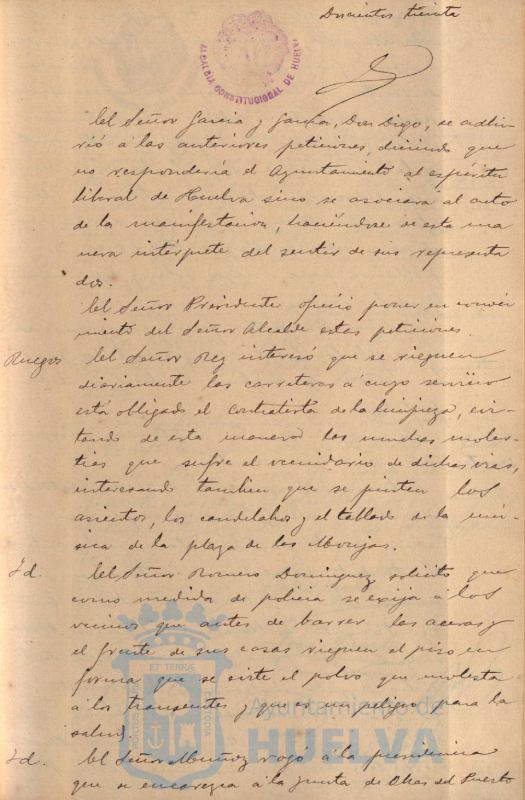 Doscientos treinta
ALCALDIA CONSTITUCIONAL DE HUELVA
El Señor Garcia y Garcia, Don Diego, se adhi-
rió á las anteriores peticiones, diciendo que
no respondería el Ayuntamiento al espíritu
liberal de Huelva sino se asociara al acto
de la manifestacion, haciéndose de esta ma
nera intérprete del sentir de sus representa
dos.
El Señor Presidente ofreció poner en conoci-
miento del Señor Alcalde estas peticiones.
Ruegos El Señor Rey interesó que se rieguen
diariamente las carreteras á cuyo servicio
está obligado el contratista de la limpieza, evi-
tando de esta manera las muchas moles-
tias que sufre el vecindario de dichas vias,
interesando tambien que se pinten los
asientos, los candelabros y el tablado de la mú-
sica de la plaza de las Monjas.
Id. El Señor Romero Dominguez solicitó que
como medida de policia se exija á los
vecinos que antes de barrer las aceras y
el frente de sus casas rieguen el piso en
forma que se evite el polvo que molesta
á los transeuntes y que es un peligro para la
salud.
Id. El Señor Muñoz rogó á la presidencia
que se encarezca á la Junta de Obras del Puerto
ET TERRAE
CUSTODIA
Ayuntamiento de
HUELVA